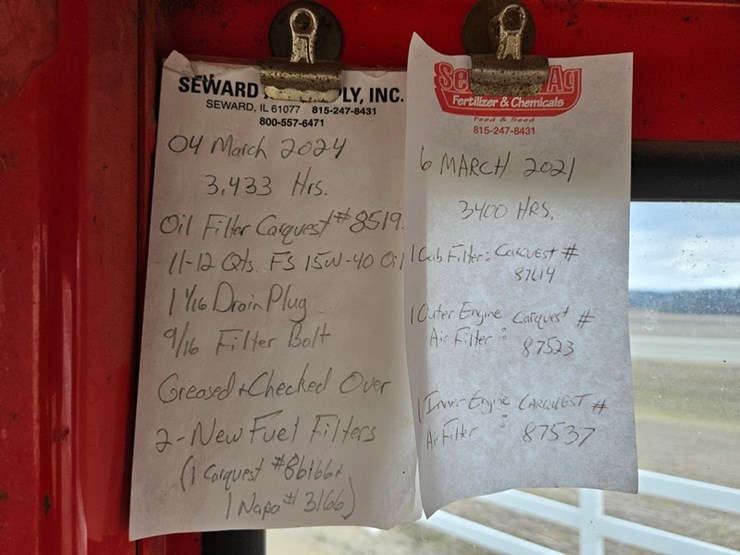 SEWARD PLY, INC.
SEWARD, IL 61077 815-247-8431
800-557-6471
04 March 2024
3,433 Hrs.
Oil Filter Carquest #8519.
11-12 Qts. FS 15W-40 Oil
1 1/16 Drain Plug
9/16 Filter Bolt
Greased + Checked Over
2-New Fuel Filters
(1 Carquest #86166+
1 Napa # 3166)
Se Ag
Fertilizer & Chemicals
Feed & Seed
815-247-8431
6 MARCH 2021
3400 HRS.
1 Cab Filter: CARQUEST #
87614
1 Outer Engine Carquest #
Air Filter: 87523
1 Inner Engine CARQUEST #
Air Filter: 87537